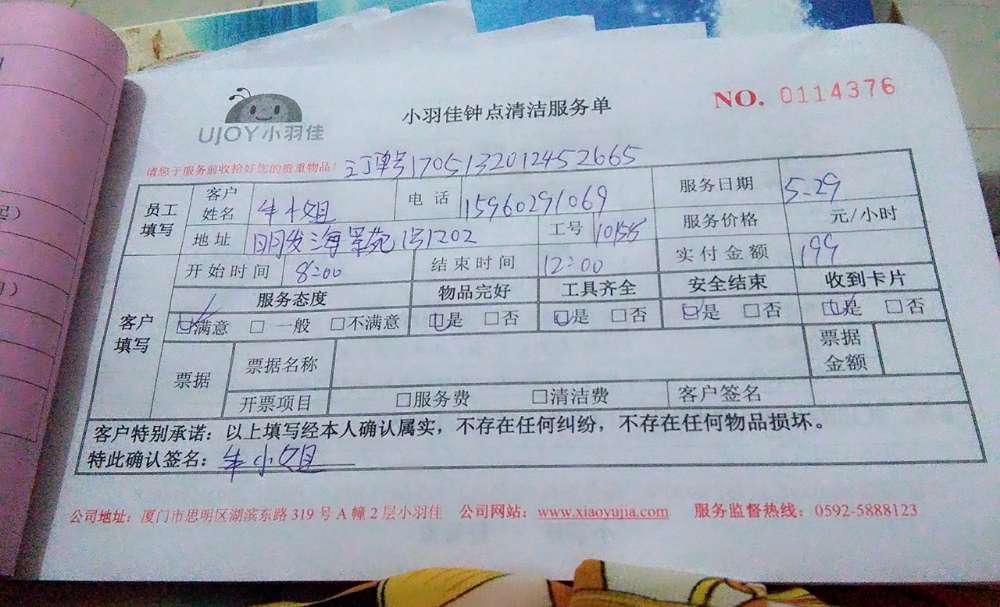 UJOY小羽佳
小羽佳钟点清洁服务单
NO. 0114376
请您于服务前收拾好您的贵重物品! 订单号170513201245266​5
员工填写 客户姓名 牛小姐 电话 15960291069 服务日期 5-29
地址 明发海景苑1号1202 工号 10155 服务价格 元/小时
客户填写 开始时间 8:00 结束时间 12:00 实付金额 199
服务态度 物品完好 工具齐全 安全结束 收到卡片
☑满意 □一般 □不满意 ☑是 □否 ☑是 □否 ☑是 □否 ☑是 □否
票据 票据名称 票据金额
开票项目 □服务费 □清洁费 客户签名
客户特别承诺:以上填写经本人确认属实,不存在任何纠纷,不存在任何物品损坏。
特此确认签名:牛小姐
公司地址:厦门市思明区湖滨东路319号A幢2层小羽佳 公司网站:www.xiaoyujia.com 服务监督热线:0592-5888123